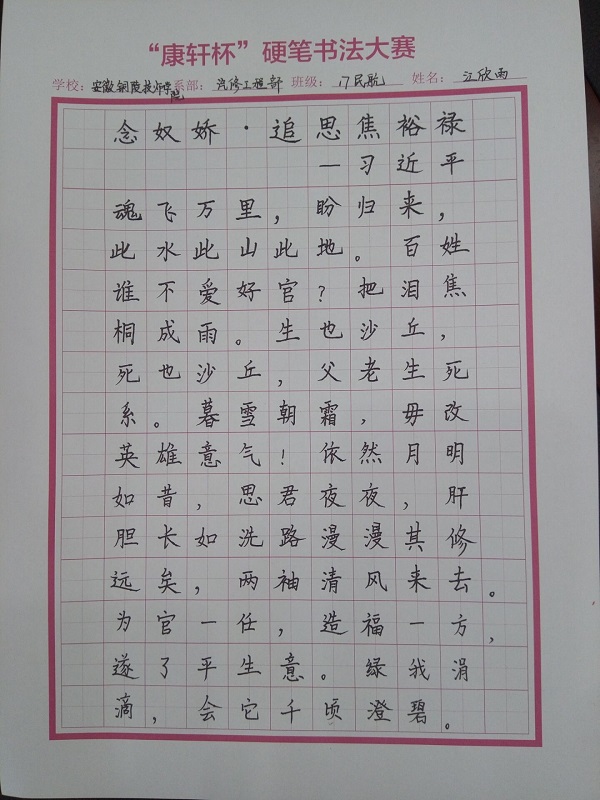 “康轩杯”硬笔书法大赛
学校：安徽铜陵技师学院 系部：汽修工程部 班级：17民航 姓名：江欣雨
念奴娇·追思焦裕禄
—习近平
魂飞万里，盼归来，
此水此山此地。百姓
谁不爱好官？把泪焦
桐成雨。生也沙丘，
死也沙丘，父老生死
系。暮雪朝霜，毋改
英雄意气！依然月明
如昔，思君夜夜，肝
胆长如洗路漫漫其修
远矣，两袖清风来去。
为官一任，造福一方，
遂了平生意。绿我涓
滴，会它千顷澄碧。